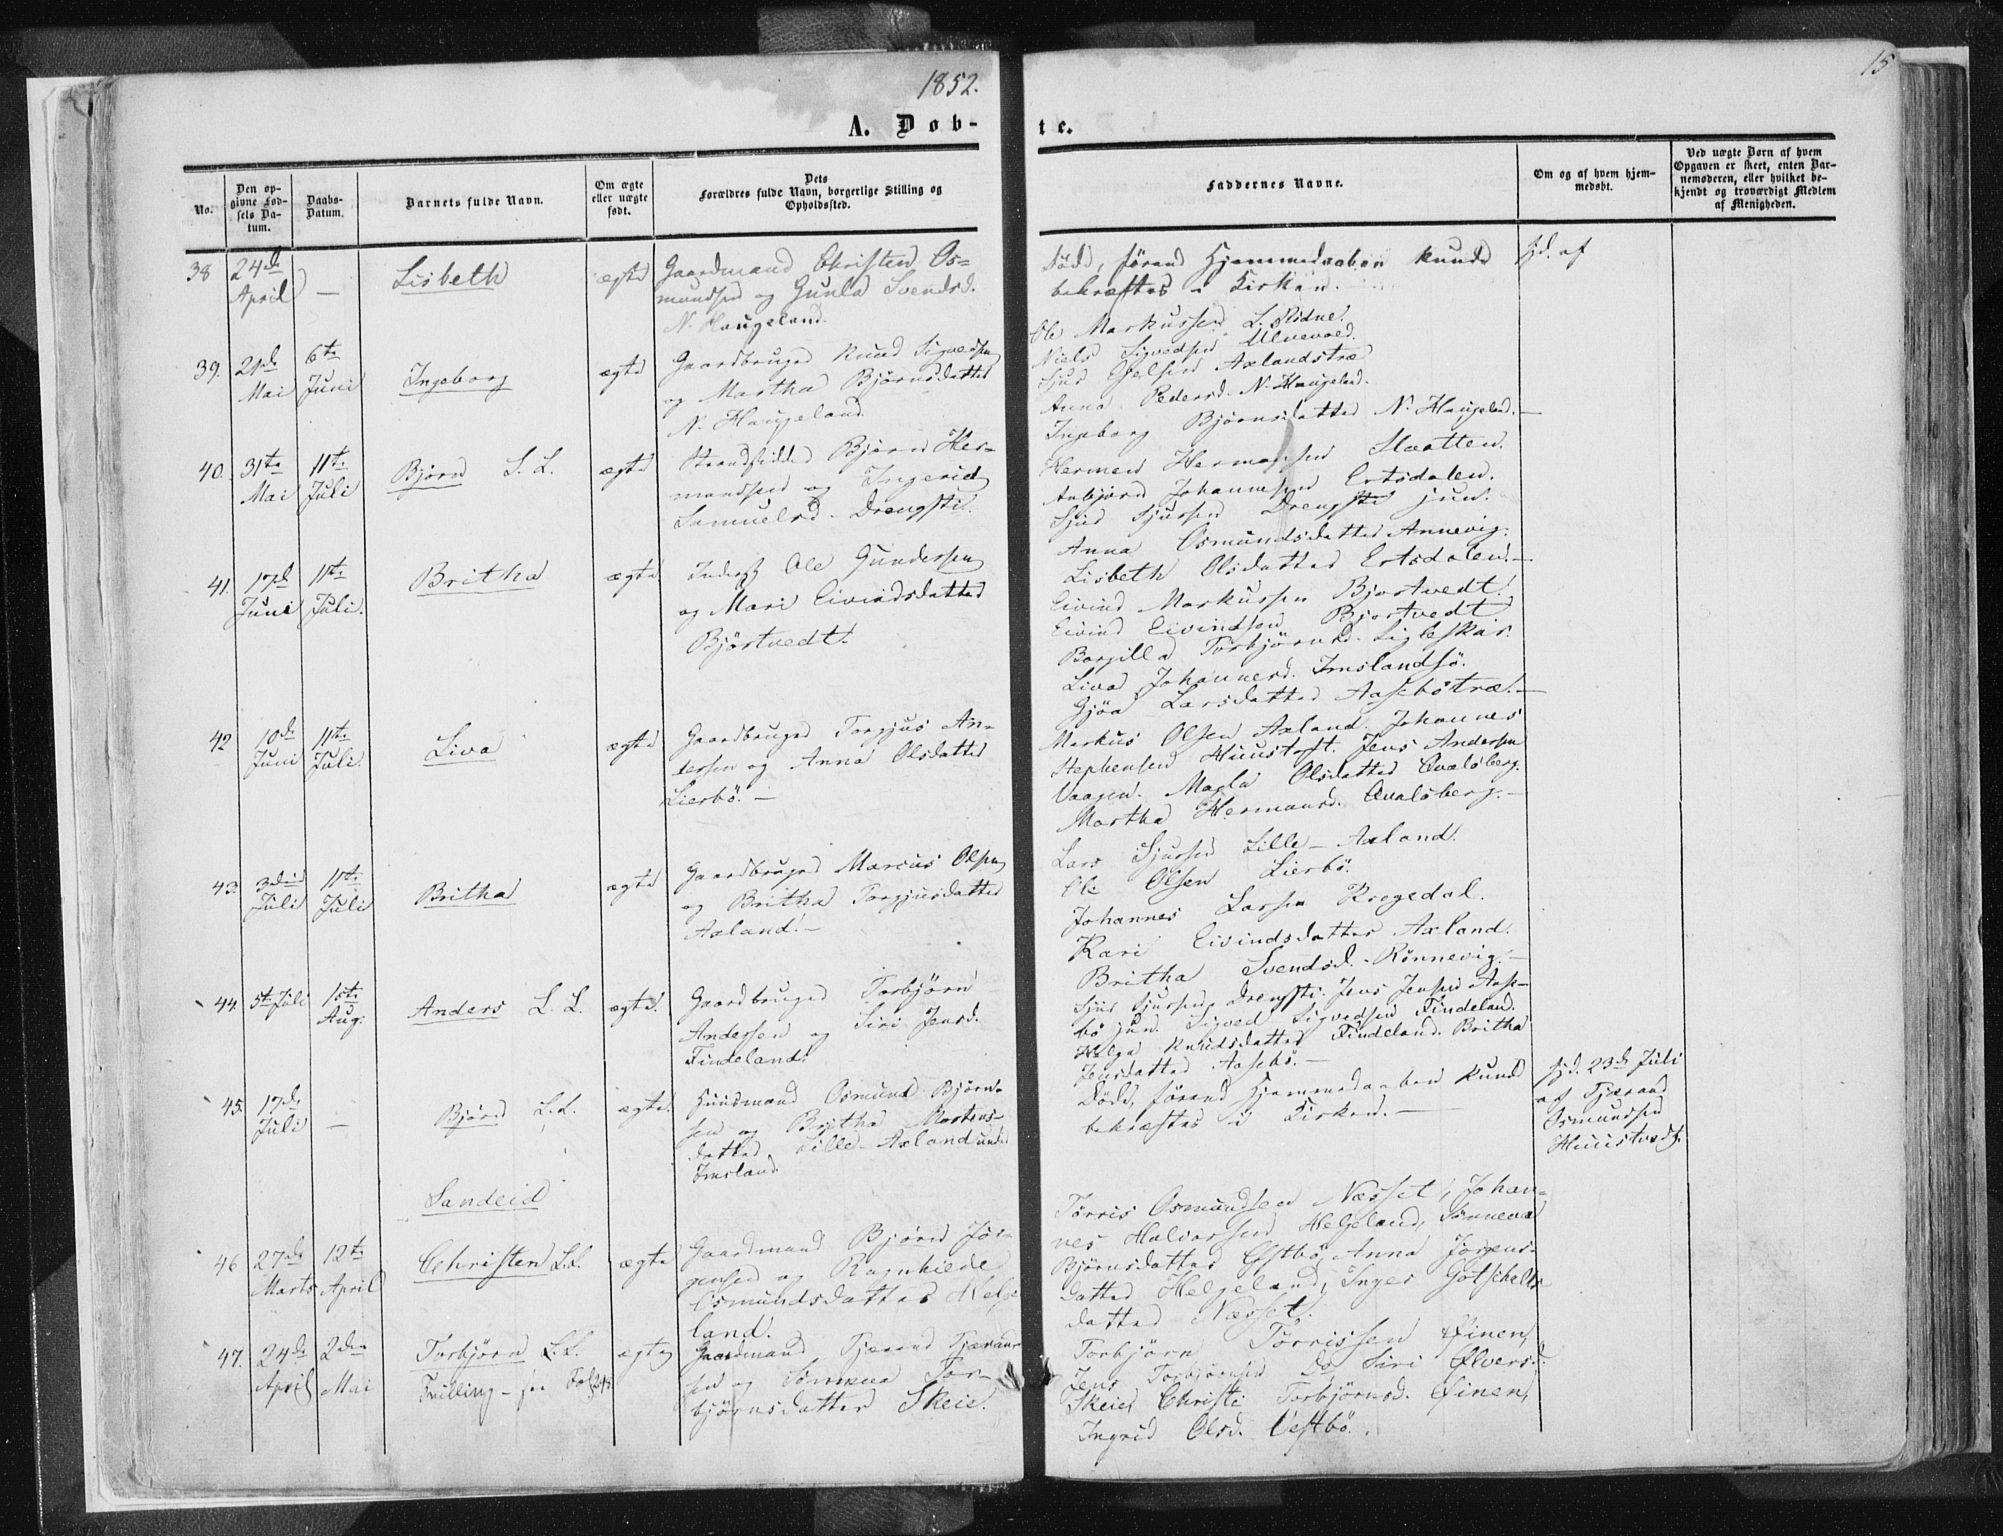 1852.
15
A. Døb-
te.
No.
Den op-
givne Fød-
sels Da-
tum.
Daabs-
Datum.
Barnets fulde Navn.
Om ægte
eller uægte
født.
Dets
Forældres fulde Navn, borgerlige Stilling og
Opholdssted.
Faddernes Navne.
Om og af hvem hjem-
medøbt.
Ved uægte Børn af hvem
Opgaven er skeet, enten Bar-
nemoderen, eller hvilket be-
kjendt og troværdigt Medlem
af Menigheden.
38
24de
April
—
Lisbeth
ægte
Gaardmand Christen Os-
mundsen og Gunla Svendsd.
N. Haugeland.
Død, førend Hjemmedaaben kunde
bekræftes i Kirken.
hjd. af
39.
21de
Mai
6te
Juni
Ingeborg
ægte
Gaardbruger Knud Sigvedsen
og Martha Bjørnsdatter
N. Haugeland.
Ole Markussen L. Ridne.
Niels Sigvedsen Ulvevoed.
Sjur Axlandstræ
Anna Pedersd. N. Haugeland.
Ingeborg Bjørnsdatter N. Haugeland.—
40.
31te
Mai
11te
Juli
Bjørn L. L.
ægte
Strandsidder Bjørn Her-
mandsen og Ingerid
Samuelsd. Drengsti.
Hermen Hermansen Staatten.
Anbjørn Johannesen Ertsdalen.
Sjur Sjursen Drengsti jun.
Anna Osmundsdatter Annevig.
Lisbeth Olsdatter Ertsdalen.—
41.
17de
Juni
11te
Juli.
Britha
ægte
Inderst Ole Gundersen
og Mari Eivindsdatter
Bjørtvedt.
Eivind Markussen Bjortvedt.
Eivind Eivindsen Bjortvedt
Borgilla Torbjørnsd.Ligleskar.
Liva Johannesd. Imslandsjø.
Gjøa Larsdatter Aasebøtræ.—
42
10de
Juni
11te
Juli.
Liva
ægte
Gaardbruger Torgjus An-
dersen og Anna Olsdatter
Lierbø.—
Markus Olsen Axland. Johannes
Stephensen Huustoft. Jens Andersen
Vaagen. Magla Olsdatter Qvaløberg.
Martha Hermansd. Qvaløberg.—
43.
3die
Juli
11te
Juli
Britha
ægte
Gaardbruger Marcus Olsen
og Britha Torgjusdatter
Axland.—
Lars Sjursen Lille-Axland.
Ole Olsen Lierbø.
Johannes Larsen Krogedal.
Kari Eivindsdatter Axland.
Britha Svendsd. Rønnevig.—
44.
5te Juli
1ste
Aug.
Anders L. L.
ægte.
Gaardbruger Torbjørn
Andersen og Siri Jensd.
Findeland.
Sjur Sjursen Drengsti. Jens Jensen Aase-
bø jun. Sigved Sigvedsen Findeland.
Helga Knudsdatter Findeland. Britha
Jensdatter Aasebø.—
45.
17de
Juli
—
Bjørn L. L.
ægte.
Huusmand Osmund Bjørn-
sen og Britha Mortens-
datter Lille-Axland under
Imsland
Død, førend Hjemmedaaben kunde
bekræftes i Kirken.—
hjd. 23de Juli
af Tjærand
Osmundsen
Huustvedt.
Sandeid
46
27de
Marts
12te
April
Christen L. L.
ægte
Gaardmand Bjørn Jør-
gensen og Ragnhilde
Osmundsdatter Helge
land.
Tørris Osmundsen Næsset, Johan-
nes Halvorsen Helgeland, Sønneva
Bjørnsdatter Østbø, Anna Jørgens-
datter Helgeland, Inger Gotschalks
datter Næsset.
47.
24de
April
2den
Mai
Torbjørn L. L.
Tvilling
ægte
Gaardmand Tjærand Tjærand
sen og Sønneva Tor-
bjørnsdatter Skeie.
Torbjørn Tørrissen Øinen,
Jens Torbjørnsen Do Siri Ølversd.
Skeie, Christi Torbjørnsd. Øinen,
Ingrid Olsd. Vestbø.